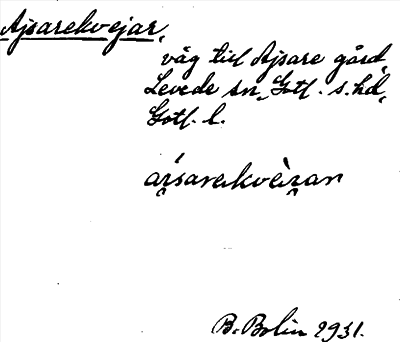 Ajsarekvejar,
väg till Ajsare gård,
Levede sn, Gotl. s. hd,
Gotl. l.
a̯i̯sarekvèi̯ar
B. Bolin 1931.